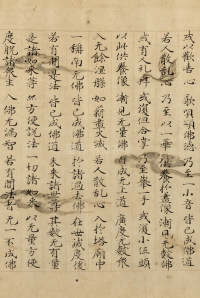 或以歡喜心 歌唄頌佛德 乃至一小音 皆已成佛道
若人散亂心 乃至以一華 供養於畫像 漸見无數佛
或有人礼拜 或復但合掌 乃至舉一手 或復小低頭
以此供養像 漸見无量佛 自成无上道 廣度无數衆
入无餘涅槃 如薪盡火滅 若人散亂心 入於塔廟中
一稱南无佛 皆已成佛道 於諸過去佛 在世或滅後
若有聞是法 皆已成佛道 未來諸世尊 其數无有量
是諸如來等 亦方便說法 一切諸如來 以无量方便
度脫諸衆生 入佛无漏智 若有聞法者 无一不成佛